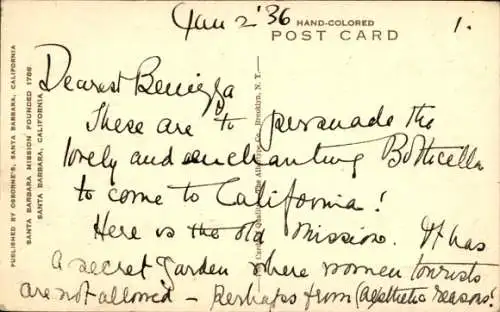 Jan 2 '36
HAND-COLORED
POST CARD
1.
Dearest
These are to persuade the
lovely and enchanting Botticella
to come to California!
Here is the old Mission. It has
a secret garden where women tourists
are not allowed — perhaps from (aesthetic reasons!
PUBLISHED BY OSBORNE'S, SANTA BARBARA, CALIFORNIA
SANTA BARBARA MISSION FOUNDED 1786
SANTA BARBARA, CALIFORNIA.
The Albertype Co., Brooklyn, N. Y.